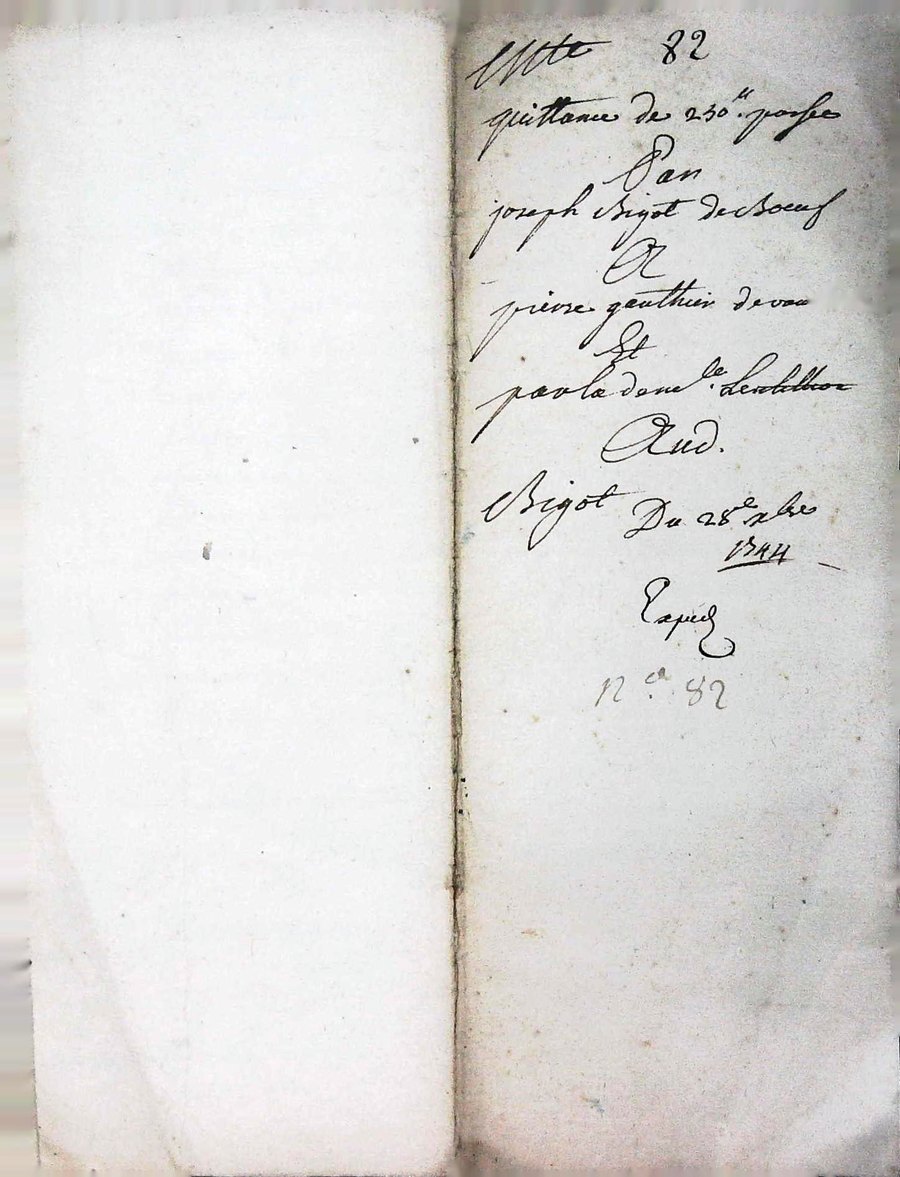 82
quittance de 230ᵗᵗ. passée
Par
joseph Bigot de Boeuf
A
pierre gauthier de vau
Et
par la demˡᵉ.
Aud.
Bigot Du 28ᵉ xbre
1744
Exped
n° 82